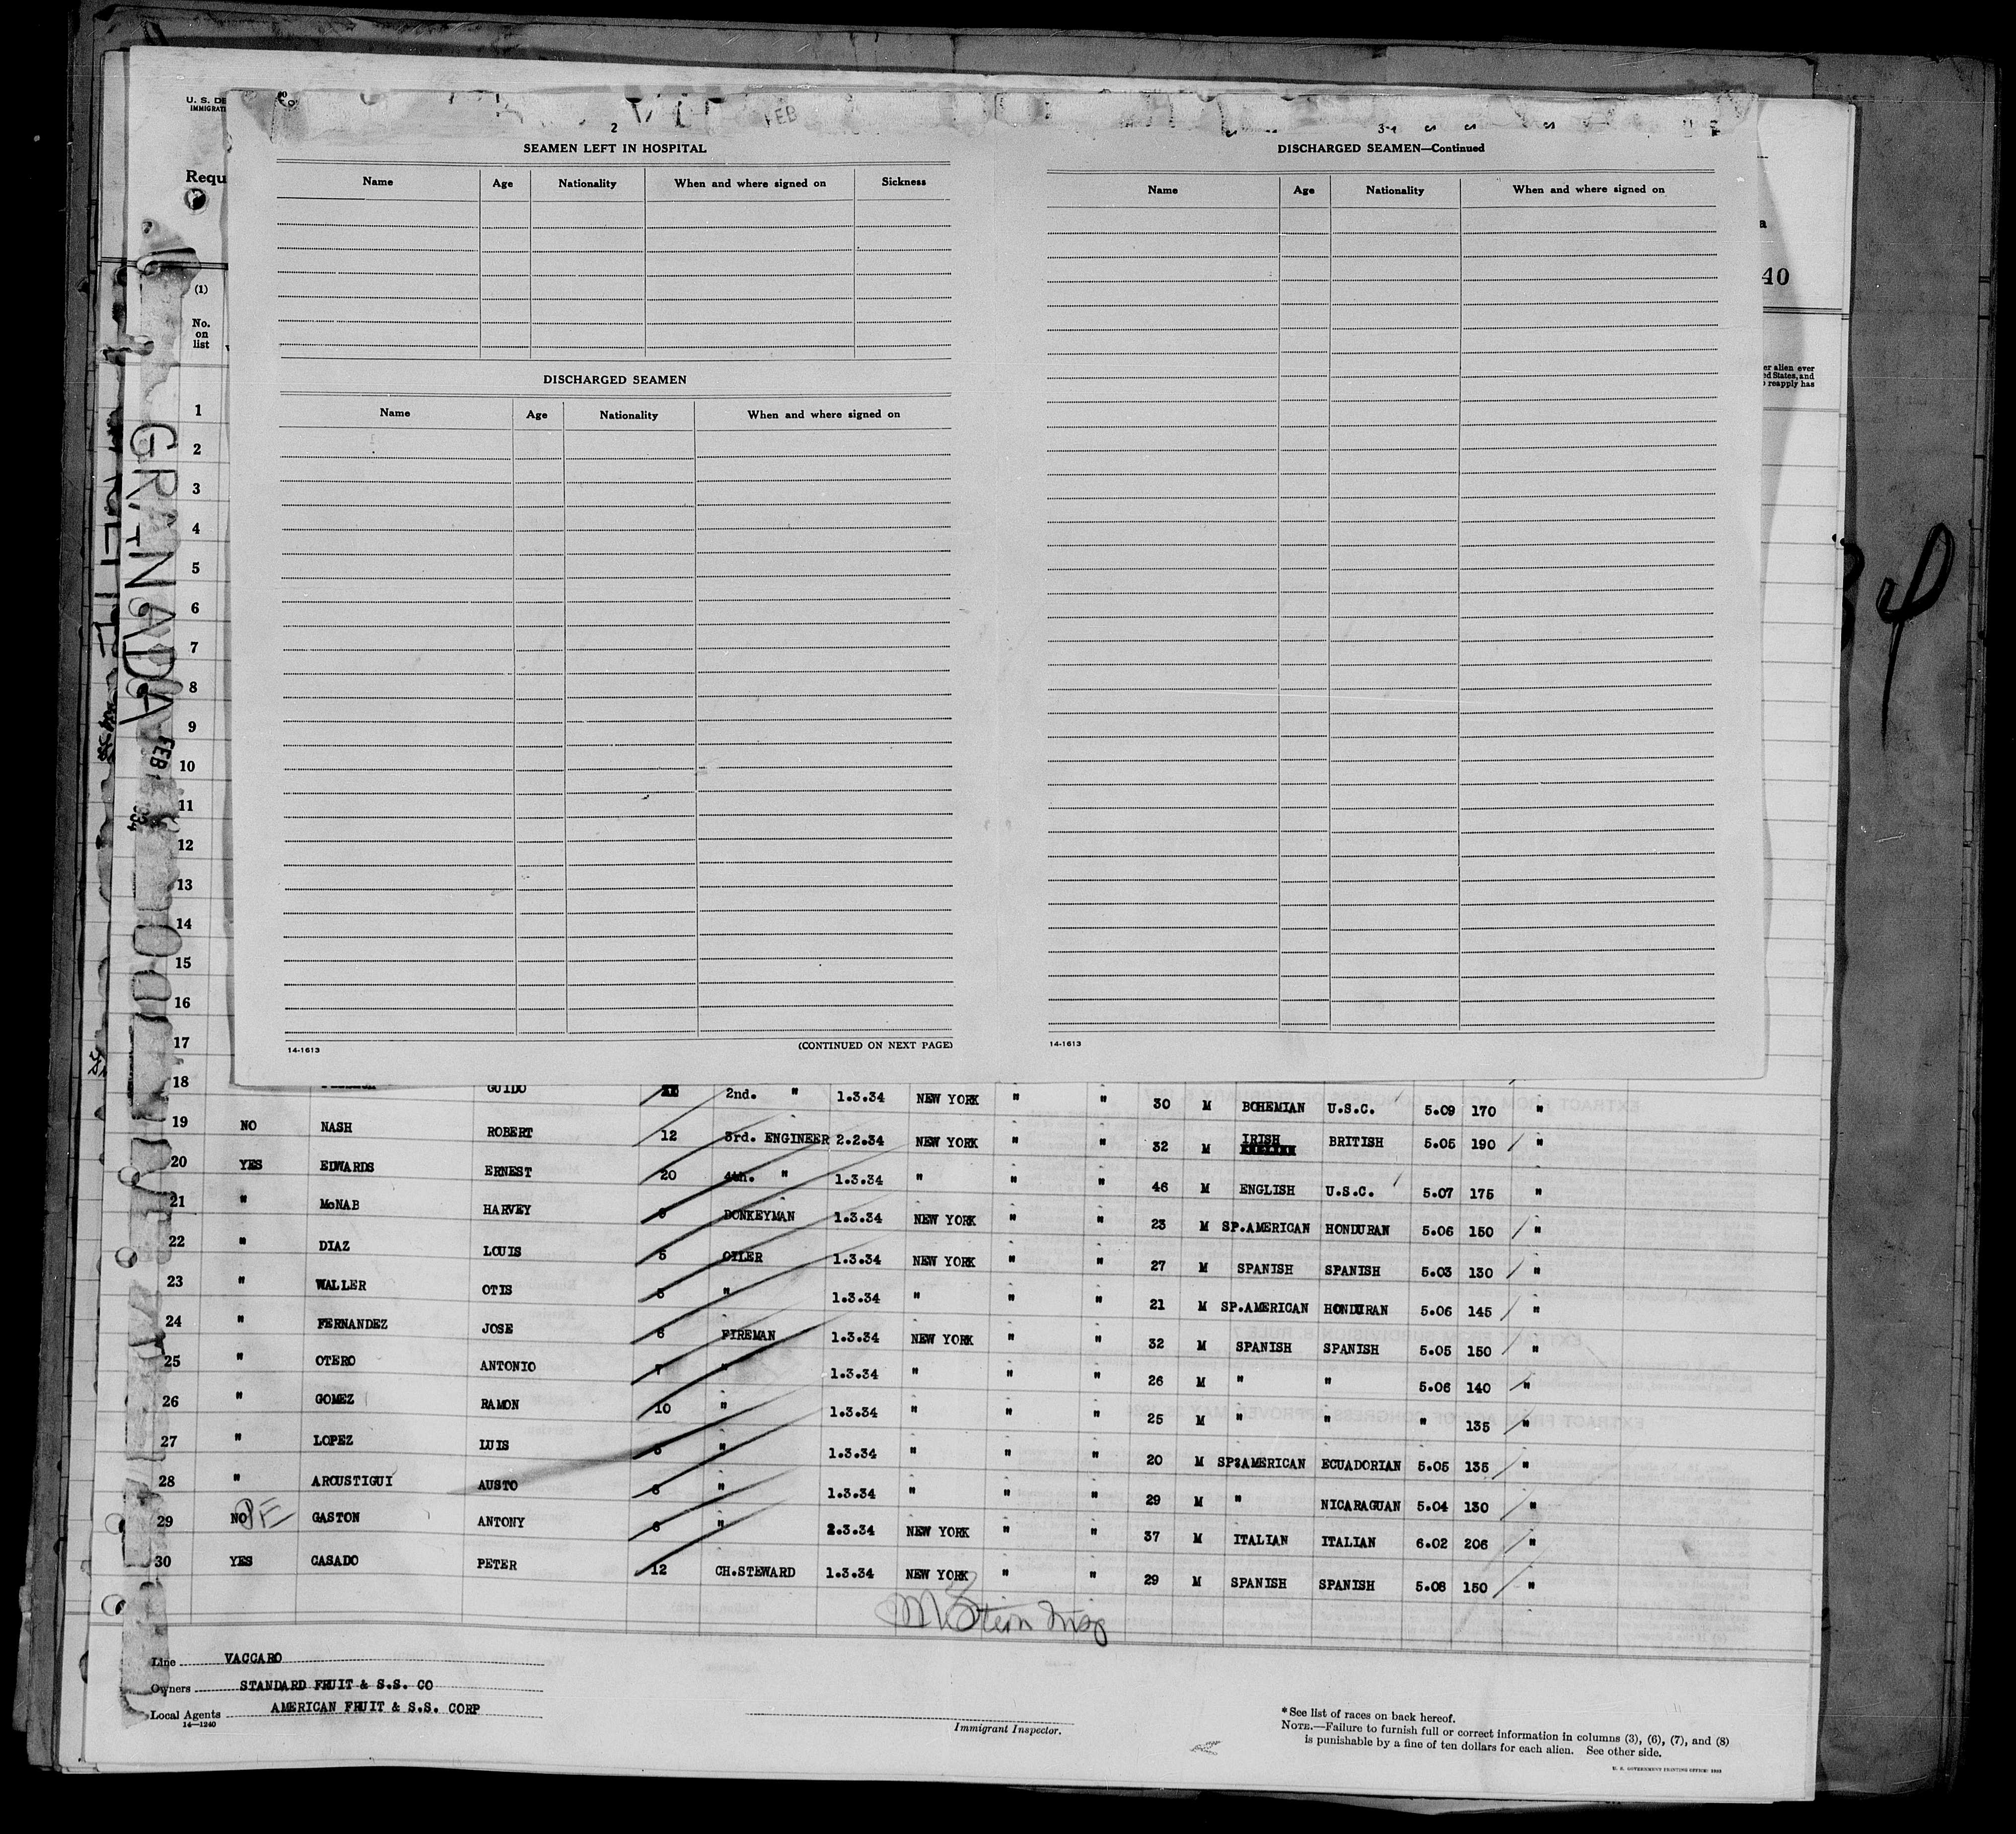 U. S. DE
IMMIGRATI
FEB
2
SEAMEN LEFT IN HOSPITAL
Name Age Nationality When and where signed on Sickness
DISCHARGED SEAMEN
Name Age Nationality When and where signed on
14-1613 (CONTINUED ON NEXT PAGE)
3
DISCHARGED SEAMEN—Continued
Name Age Nationality When and where signed on
14-1613
Requ
a
40
(1)
No.
on
list
er alien ever
ed States, and
reapply has
GRANADA
FEB
1
2
3
4
5
6
7
8
9
10
11
12
13
14
15
16
17
18 GUIDO 2nd. " 1.3.34 NEW YORK " " 30 M BOHEMIAN U.S.C. 5.09 170 "
19 NO NASH ROBERT 12 3rd. ENGINEER 2.2.34 NEW YORK " " 32 M IRISH BRITISH 5.05 190 "
20 YES EDWARDS ERNEST 20 4th. " 1.3.34 " " " 46 M ENGLISH U.S.C. 5.07 175 "
21 " McNAB HARVEY DONKEYMAN 1.3.34 NEW YORK " " 23 M SP.AMERICAN HONDURAN 5.06 150 "
22 " DIAZ LOUIS 5 OILER 1.3.34 NEW YORK " " 27 M SPANISH SPANISH 5.03 130 "
23 " WALLER OTIS " 1.3.34 " " " 21 M SP.AMERICAN HONDURAN 5.06 145 "
24 " FERNANDEZ JOSE 6 FIREMAN 1.3.34 NEW YORK " " 32 M SPANISH SPANISH 5.05 150 "
25 " OTERO ANTONIO 7 " 1.3.34 " " " 26 M " " 5.06 140 "
26 " GOMEZ RAMON 10 " 1.3.34 " " " 25 M " " " 135 "
27 " LOPEZ LUIS " 1.3.34 " " " 20 M SP.AMERICAN ECUADORIAN 5.05 135 "
28 " AROUSTIGUI AUSTO " 1.3.34 " " " 29 M " NICARAGUAN 5.04 130 "
29 NO GASTON ANTONY " 2.3.34 NEW YORK " " 37 M ITALIAN ITALIAN 6.02 206 "
30 YES CASADO PETER 12 CH.STEWARD 1.3.34 NEW YORK " " 29 M SPANISH SPANISH 5.08 150 "
Line VACCARO
Owners STANDARD FRUIT & S.S. CO
Local Agents AMERICAN FRUIT & S.S. CORP
14—1240
Immigrant Inspector.
*See list of races on back hereof.
NOTE.—Failure to furnish full or correct information in columns (3), (6), (7), and (8)
is punishable by a fine of ten dollars for each alien. See other side.